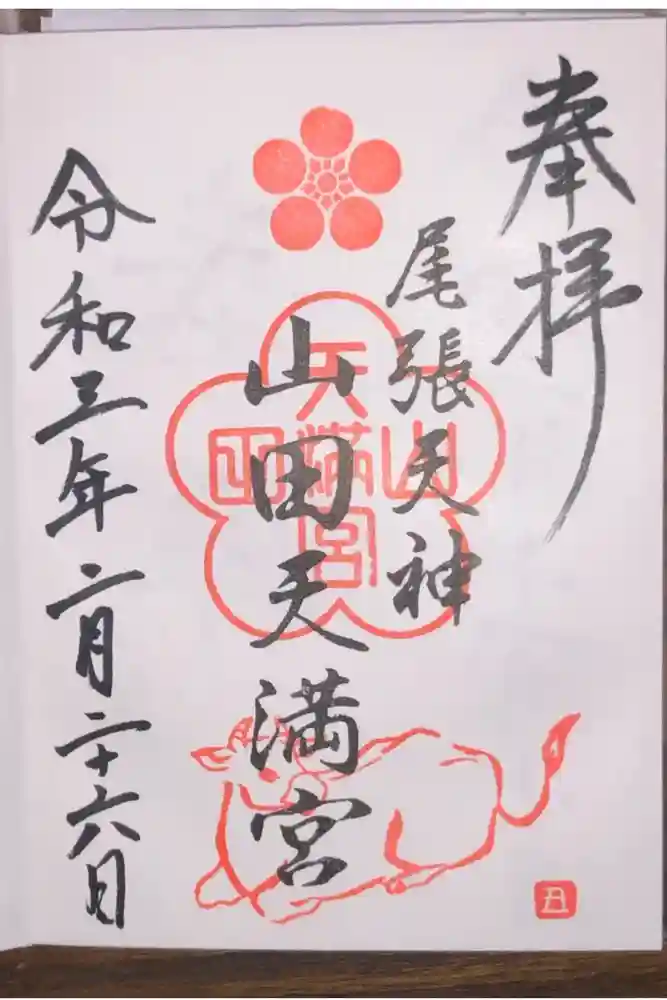 奉拝
尾張天神
山田天満宮
山田
天満宮
令和三年二月二十六日
丑